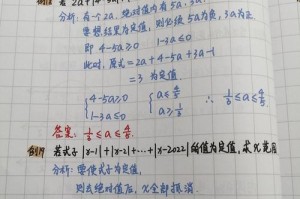 若 2a+|4-5a|+
分析: 有一个2a, 绝对值内有5a, 3a.
要想结果为定值, 则必须5a为负, 3a为正
即 4-5a≥0  1-3a≤0
此时, 原式=2a+4-5a+3a-1
=3 为定值.
{4-5a≥0 {a≤4/5 ∴ 1/3≤a≤4/5
1-3a≤0 a≥1/3
答案: 1/3≤a≤4/5.
例19 若式子|x-1|+|x-2|+…+|x-2022|的值为定值, 求x范围
分析: 要使式子为定值,
则去绝对值后, x全部抵消.